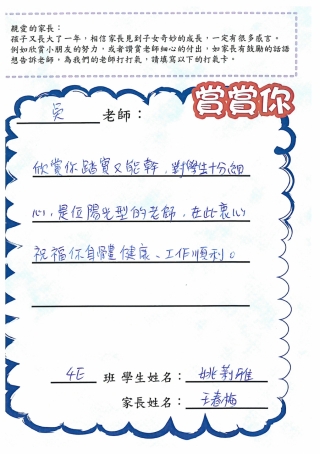 親愛的家長：
孩子又長大了一年，相信家長見到子女奇妙的成長，一定有很多感言。
例如欣賞小朋友的努力，或者讚賞老師細心的付出，如家長有鼓勵的話語
想告訴老師，為我們的老師打打氣，請填寫以下的打氣卡。
賞賞你
吳 老師：
欣賞你踏實又能幹，對學生十分細
心，是位陽光型的老師，在此衷心
祝福你身體健康、工作順利。
4E 班 學生姓名：姚 雅
家長姓名：王春梅